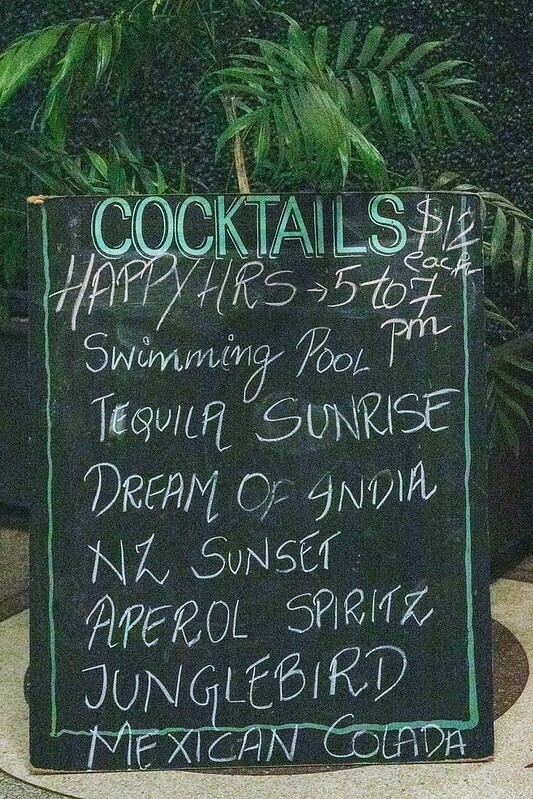 COCKTAILS $12
each
HAPPY HRS → 5 to 7
pm
Swimming Pool
TEQUILA SUNRISE
DREAM OF INDIA
NZ SUNSET
APEROL SPIRITZ
JUNGLEBIRD
MEXICAN COLADA